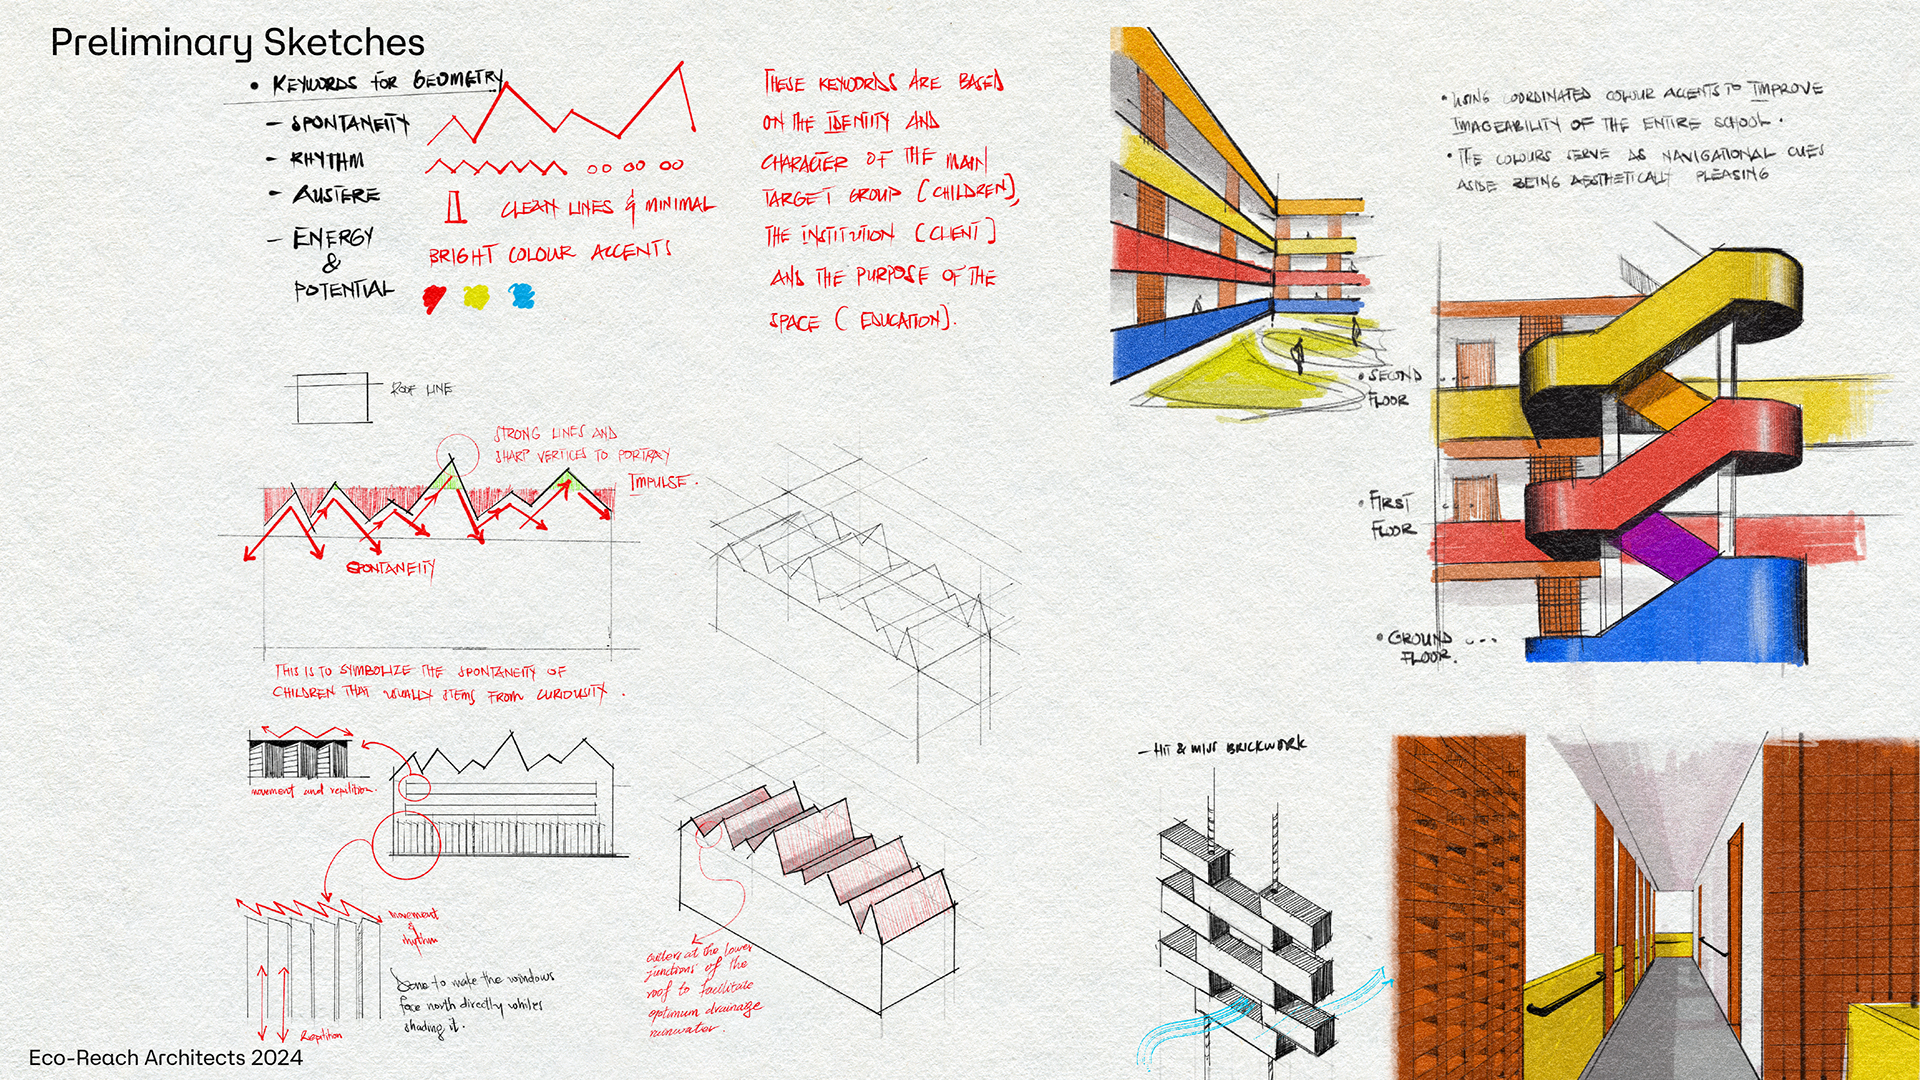 Preliminary Sketches
• KEYWORDS FOR GEOMETRY
- SPONTANEITY
- RHYTHM
- AUSTERE
- ENERGY
&
POTENTIAL
CLEAN LINES & MINIMAL
BRIGHT COLOUR ACCENTS
THESE KEYWORDS ARE BASED
ON THE IDENTITY AND
CHARACTER OF THE MAIN
TARGET GROUP (CHILDREN),
THE INSTITUTION (CLIENT)
AND THE PURPOSE OF THE
SPACE (EDUCATION).
ROOF LINE
STRONG LINES AND
SHARP VERTICES TO PORTRAY
IMPULSE.
SPONTANEITY
THIS IS TO SYMBOLIZE THE SPONTANEITY OF
CHILDREN THAT USUALLY STEMS FROM CURIOUSITY.
movement and repitition.
movement
&
rhythm
Done to make the windows
face north directly whiles
shading it.
Repitition
gutters at the lower
junctions of the
roof to facilitate
optimum drainage
rainwater.
• USING COORDINATED COLOUR ACCENTS TO IMPROVE
IMAGEABILITY OF THE ENTIRE SCHOOL.
• THE COLOURS SERVE AS NAVIGATIONAL CUES
ASIDE BEING AESTHETICALLY PLEASING
• SECOND
FLOOR
• FIRST
FLOOR
• GROUND
FLOOR.
- HIT & MISS BRICKWORK
Eco-Reach Architects 2024